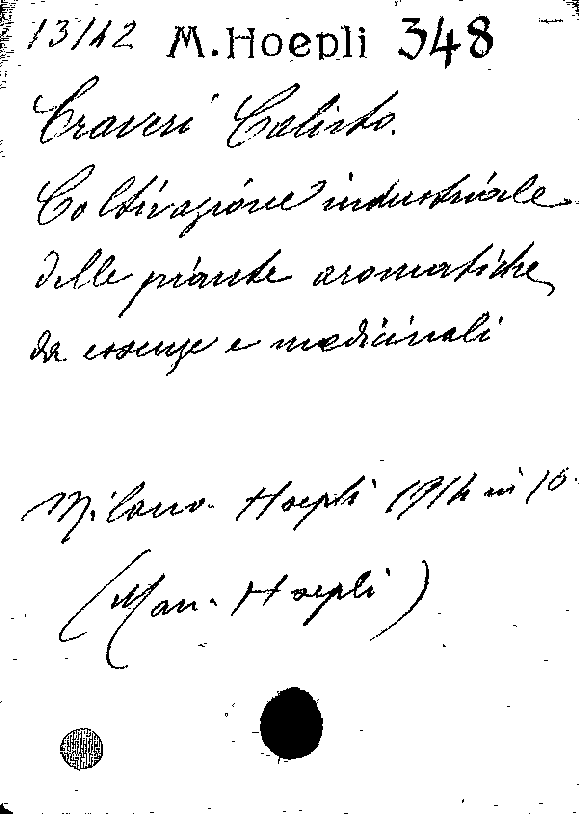 13142 M. Hoepli 348
Craveri Calisto.
Coltivazione industriale
delle piante aromatiche,
da essenze e medicinali
Milano. Hoepli 1914 in 16.
(Man. Hoepli)